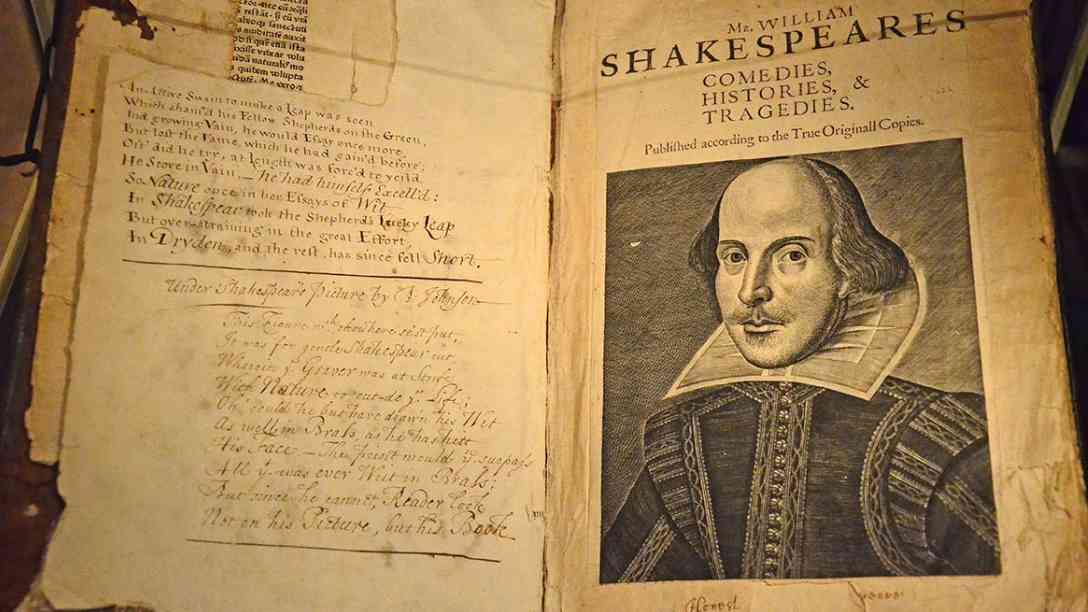 An Active Swain to make a Leap was seen
Which sham'd his Fellow Shepherds on the Green,
And growing Vain, he would Essay once more,
But lost the Fame, which he had gain'd before;
Oft' did he try, at length was forc'd to yeild
He Strove in Vain,—he had himself Excell'd:
So Nature once in her Essays of Wit
In Shakespear took the Shepherd's Lucky Leap
But over-straining in the great Effort,
In Dryden, and the rest, has since fell Short.
Under Shakespears Picture by B. Johnson
This Figure yt. thou here seest put,
It was for gentle Shakespear cut
Wherein ye. Graver was at Strife
With Nature to out-do ye. Life;
Oh! could he but have drawn his Wit
As well in Brass, as he has hitt
His Face—The print would yn. surpass
All yt. was ever Writ in Brass;
But since he cannot, Reader look
Not on his Picture, but his Book
Mr. WILLIAM
SHAKESPEARES
COMEDIES,
HISTORIES, &
TRAGEDIES.
Publiſhed according to the True Originall Copies.